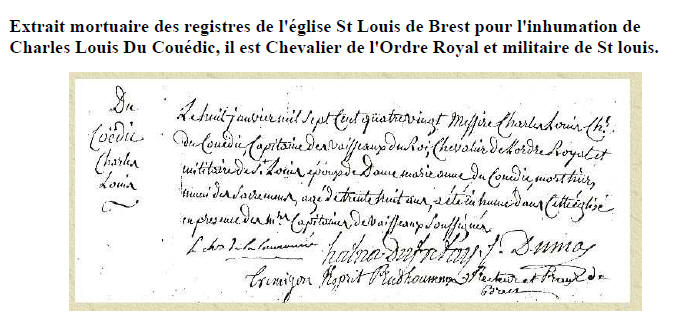 Extrait mortuaire des registres de l'église St Louis de Brest pour l'inhumation de
Charles Louis Du Couédic, il est Chevalier de l'Ordre Royal et militaire de St louis.
Du
Coëdic
Charles
Louis
Le huit janvier mil Sept Cent quatre vingt Messire Charles Louis Ch.
du Couedic Capitaine des Vaisseaux du Roi, Chevalier de l'ordre Royal et
militaire de S. Louis époux de Dame marie anne du Couedic, mort hier,
muni des Sacremens, agé de trente huit ans, a été inhumé dans Cette église
en presence des mrs Capitaines de Vaisseaux Soussignés
L. Ch de la
Dumas
Tremigon Prudhomme Recteur et
Brest